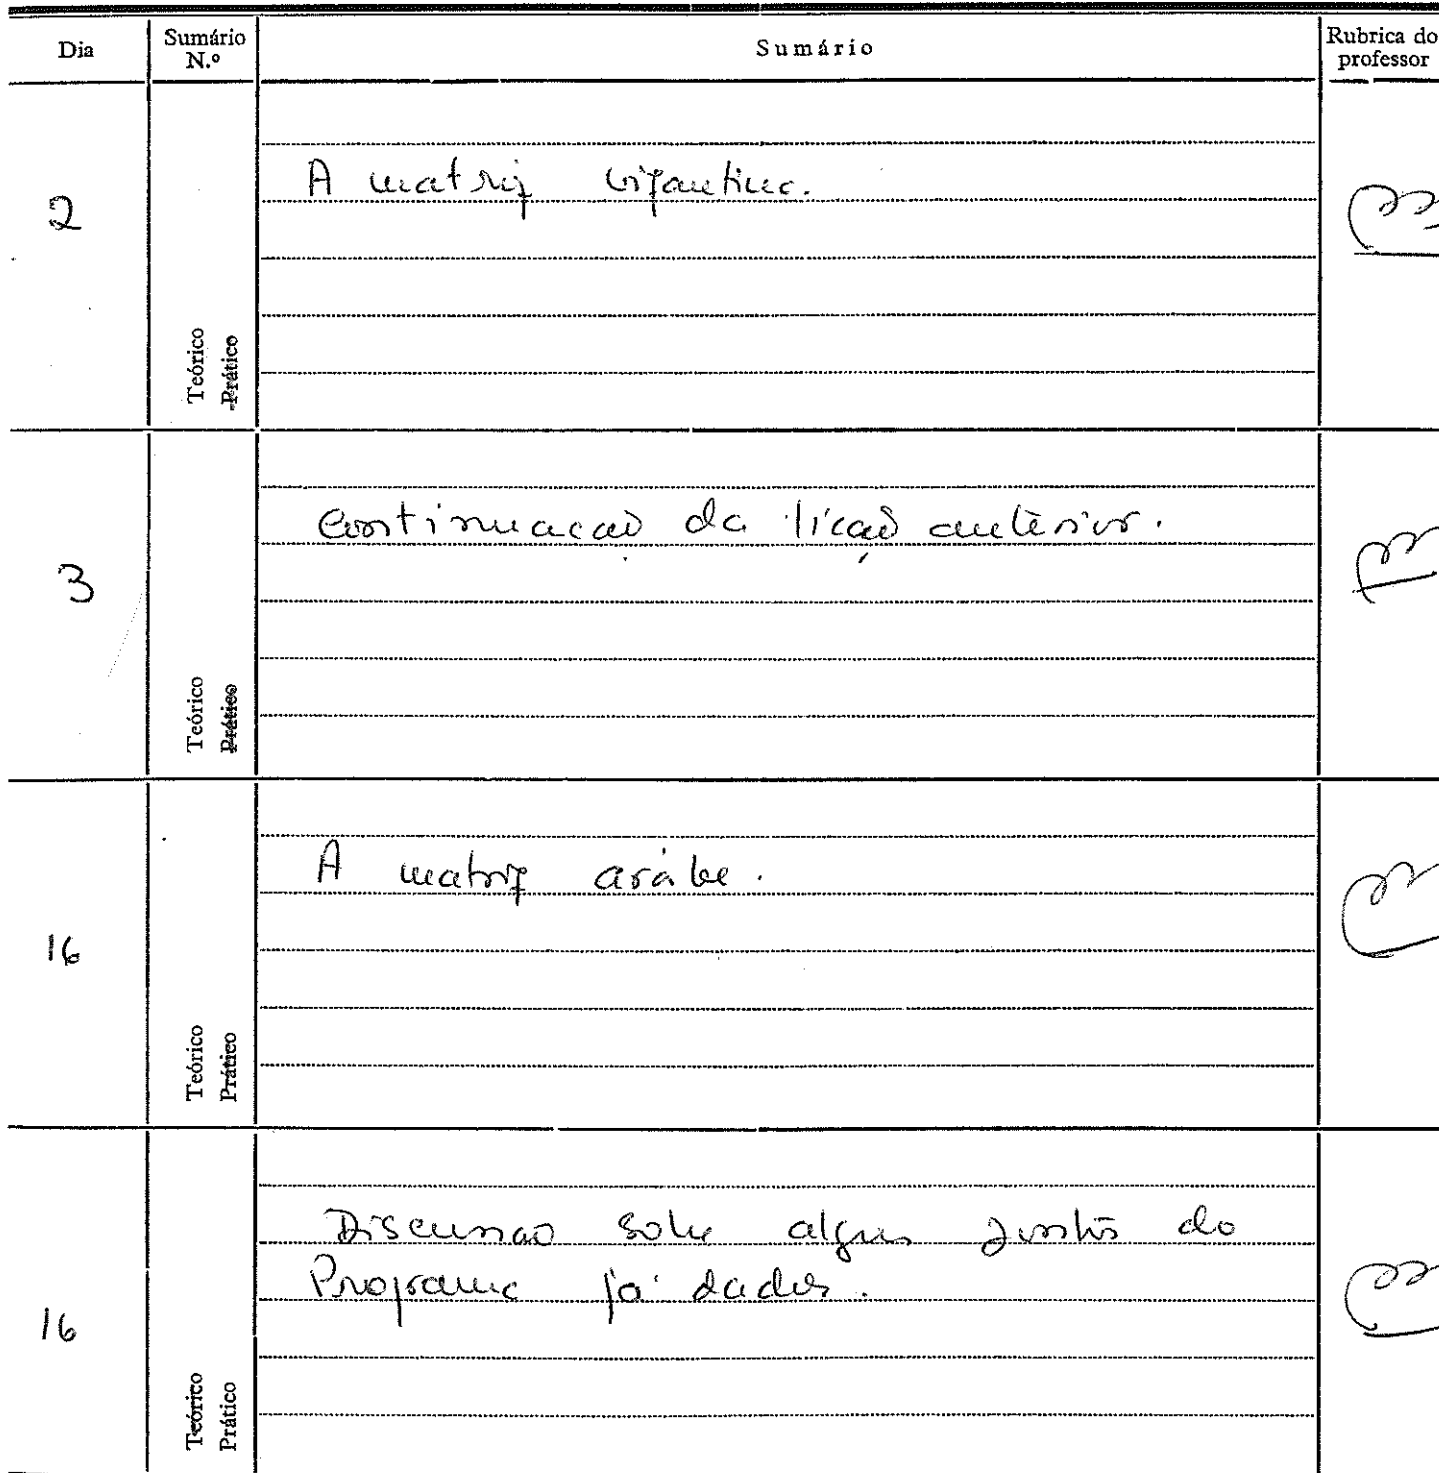 Dia
Sumário N.º
Sumário
Rubrica do professor
2
Teórico
Prático
A matriz bizantina.
3
Teórico
Prático
Continuação da lição anterior.
16
Teórico
Prático
A matriz arábe.
16
Teórico
Prático
Discussão sobre alguns pontos do
Programa já dados.